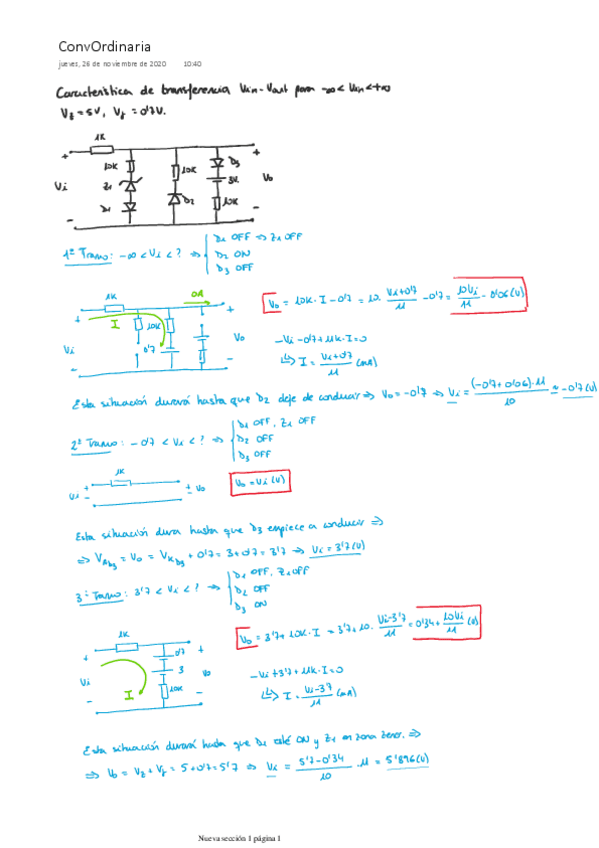 ConvOrdinaria
jueves, 26 de noviembre de 2020 10:40
Característica de transferencia Vin-Vout para -∞ < Vin < +∞
Vz = 5V, Vγ = 0'7V.
1K
+ 10K 10K D3 +
Vi Z1 3V Vo
D1 D2 10K
- -
1º Tramo: -∞ < Vi < ? ⇒ { D1 OFF ⇒ Z1 OFF
D2 ON
D3 OFF
1K 0A
+ I 10K +
Vi 0'7 Vo
- -
Vo = 10K · I - 0'7 = 10 · (Vi+0'7)/11 - 0'7 = 10Vi/11 - 0'06 (V)
-Vi - 0'7 + 11K · I = 0
↳ I = (Vi+0'7)/11 (mA)
Esta situación durará hasta que D2 deje de conducir ⇒ Vo = -0'7 ⇒ Vi = (-0'7+0'06)·11/10 ≈ -0'7 (V)
2º Tramo: -0'7 < Vi < ? ⇒ { D1 OFF, Z1 OFF
D2 OFF
D3 OFF
1K
Vi + - + - Vo
Vo = Vi (V)
Esta situación dura hasta que D3 empiece a conducir ⇒
⇒ VAD3 = Vo = VKD3 + 0'7 = 3 + 0'7 = 3'7 ⇒ Vi = 3'7 (V)
3º Tramo: 3'7 < Vi < ? ⇒ { D1 OFF, Z1 OFF
D2 OFF
D3 ON
1K
+ 0'7 +
Vi 3 Vo
I 10K
- -
Vo = 3'7 + 10K · I = 3'7 + 10 · (Vi-3'7)/11 = 0'34 + 10Vi/11 (V)
-Vi + 3'7 + 11K · I = 0
↳ I = (Vi-3'7)/11 (mA)
Esta situación durará hasta que D1 esté ON y Z1 en zona zener. ⇒
⇒ Vo = Vz + Vγ = 5 + 0'7 = 5'7 ⇒ Vi = (5'7-0'34)/10 · 11 = 5'896 (V)
Nueva sección 1 página 1